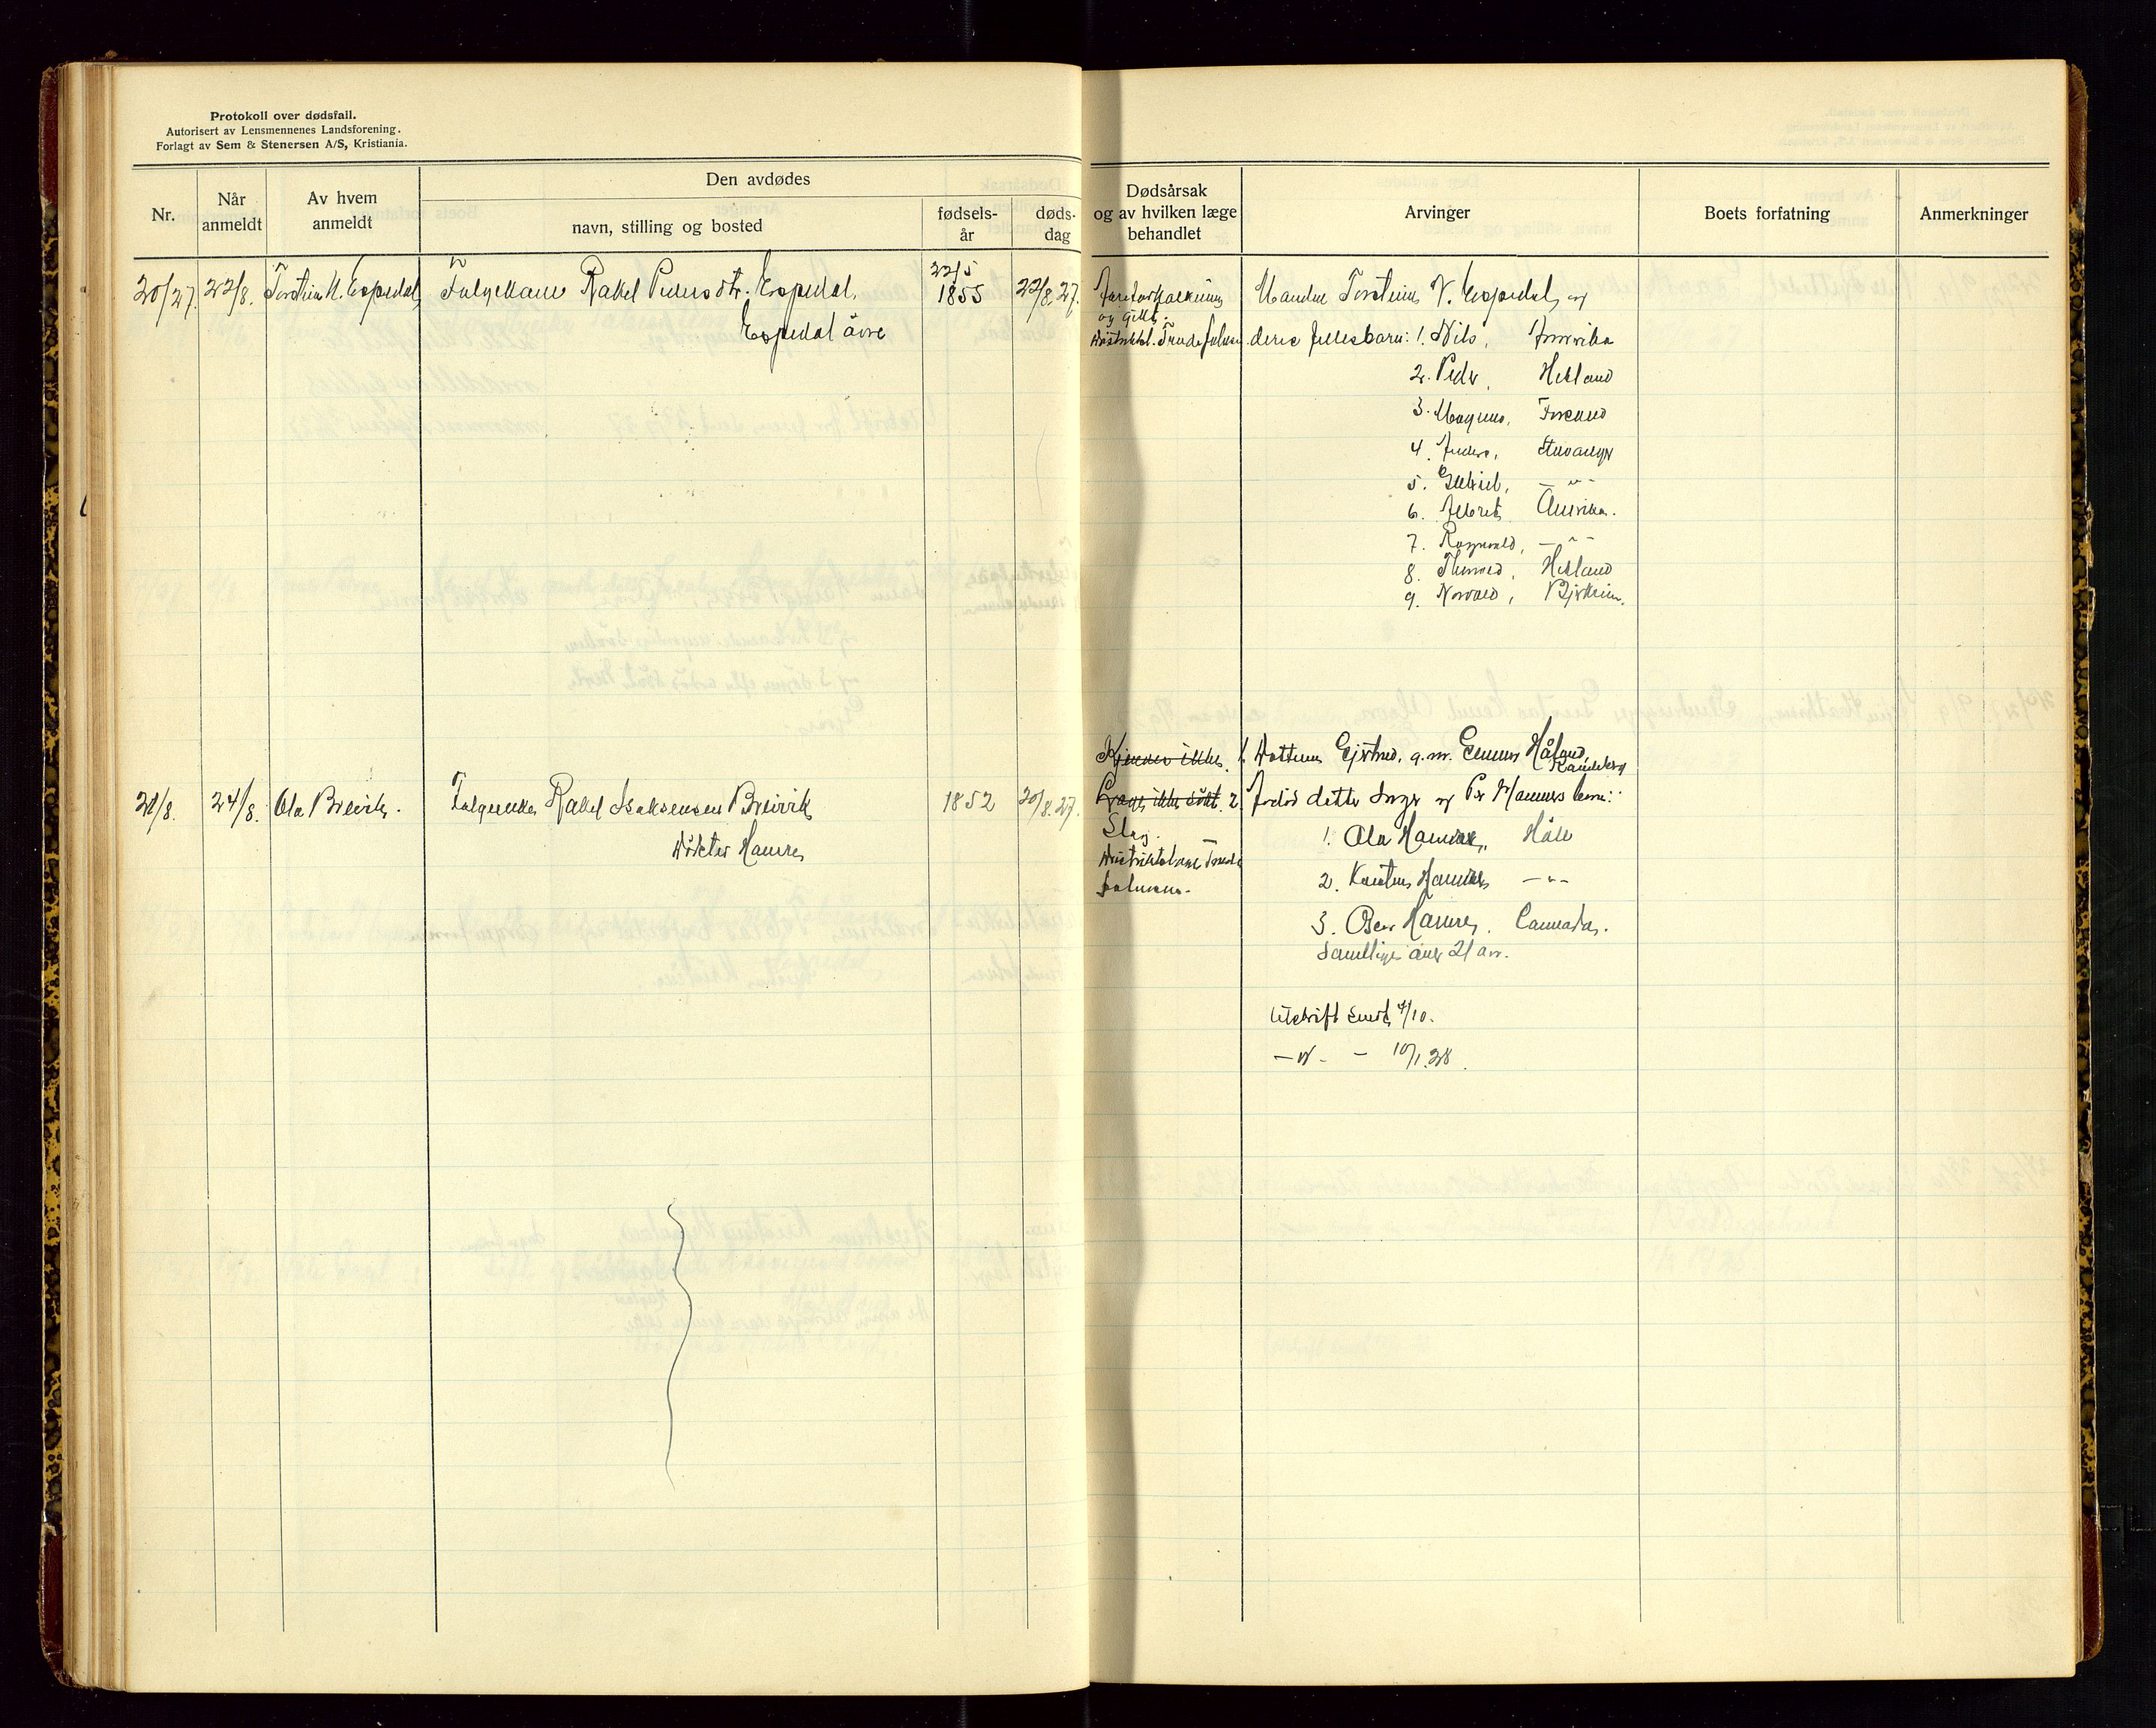 Protokoll over dødsfall.
Autorisert av Lensmennenes Landsforening.
Forlagt av Sem & Stenersen A/S, Kristiania.
Nr.
Når anmeldt
Av hvem anmeldt
Den avdødes
navn, stilling og bosted
fødsels-år
døds-dag
Dødsårsak og av hvilken læge behandlet
Arvinger
Boets forfatning
Anmerkninger
20/27. 22/8. Torstein N. Espedal
Folgekone Rakel Pedersdtr. Espedal,
Espedal övre
22/5 1855
22/8.27.
Areforkalkning
og gikt.
Distriktsl. Trude
Manden Torstein N. Espedal, og
deres fellesbarn: 1. Nils, Amerika
2. Peder, Helland
3. Magnus, Forsand
4. Anders, Stavanger
5. Gabriel, — " -
6. Albert, Amerika.
7. Ragnvald, — " -
8. Thorvald, Helland
9. Norvald, Bjerkreim.
21/8. 24/8. Ola Breivik.
Folgeenke Rakel Isaksensen Breivik
Hamre
1852
20/8.27.
Kjenner ikke.
Læge ikke sökt.
Slag.
Distriktslæge Trude
1. Gjertrud, g.m. Håland, Randeberg
2. Avdöd datter Inger og Per Hamres barn:
1. Ola Hamre, Hålè
2. Hamre — " -
3. Hamre. Cannada.
Samtlige över 21 år.
Utskrift sendt 4/10.
— " - - 10/1.28.